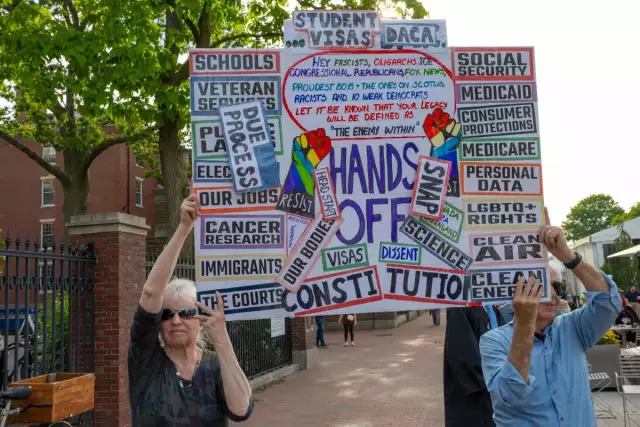 STUDENT
VISAS
DACA
SCHOOLS
VETERAN
DUE
PROCESS
OUR JOBS
CANCER
RESEARCH
IMMIGRANTS
THE COURTS
HEY FASCISTS, OLIGARCHS, ICE
CONGRESSIONAL REPUBLICANS, FOX NEWS,
PROUDEST BOIS + THE ONES ON SCOTUS,
RACISTS AND 10 WEAK DEMOCRATS
LET IT BE KNOWN THAT YOUR LEGACY
WILL BE DEFINED AS
"THE ENEMY WITHIN"
HANDS
OFF
RESIST
HEAD START
OUR BODIES
VISAS
DISSENT
SNAP
SCIENCE
CONSTI TUTION
SOCIAL
SECURITY
MEDICAID
CONSUMER
PROTECTIONS
MEDICARE
PERSONAL
DATA
LGBTQ+
RIGHTS
CLEAN
AIR
CLEAN